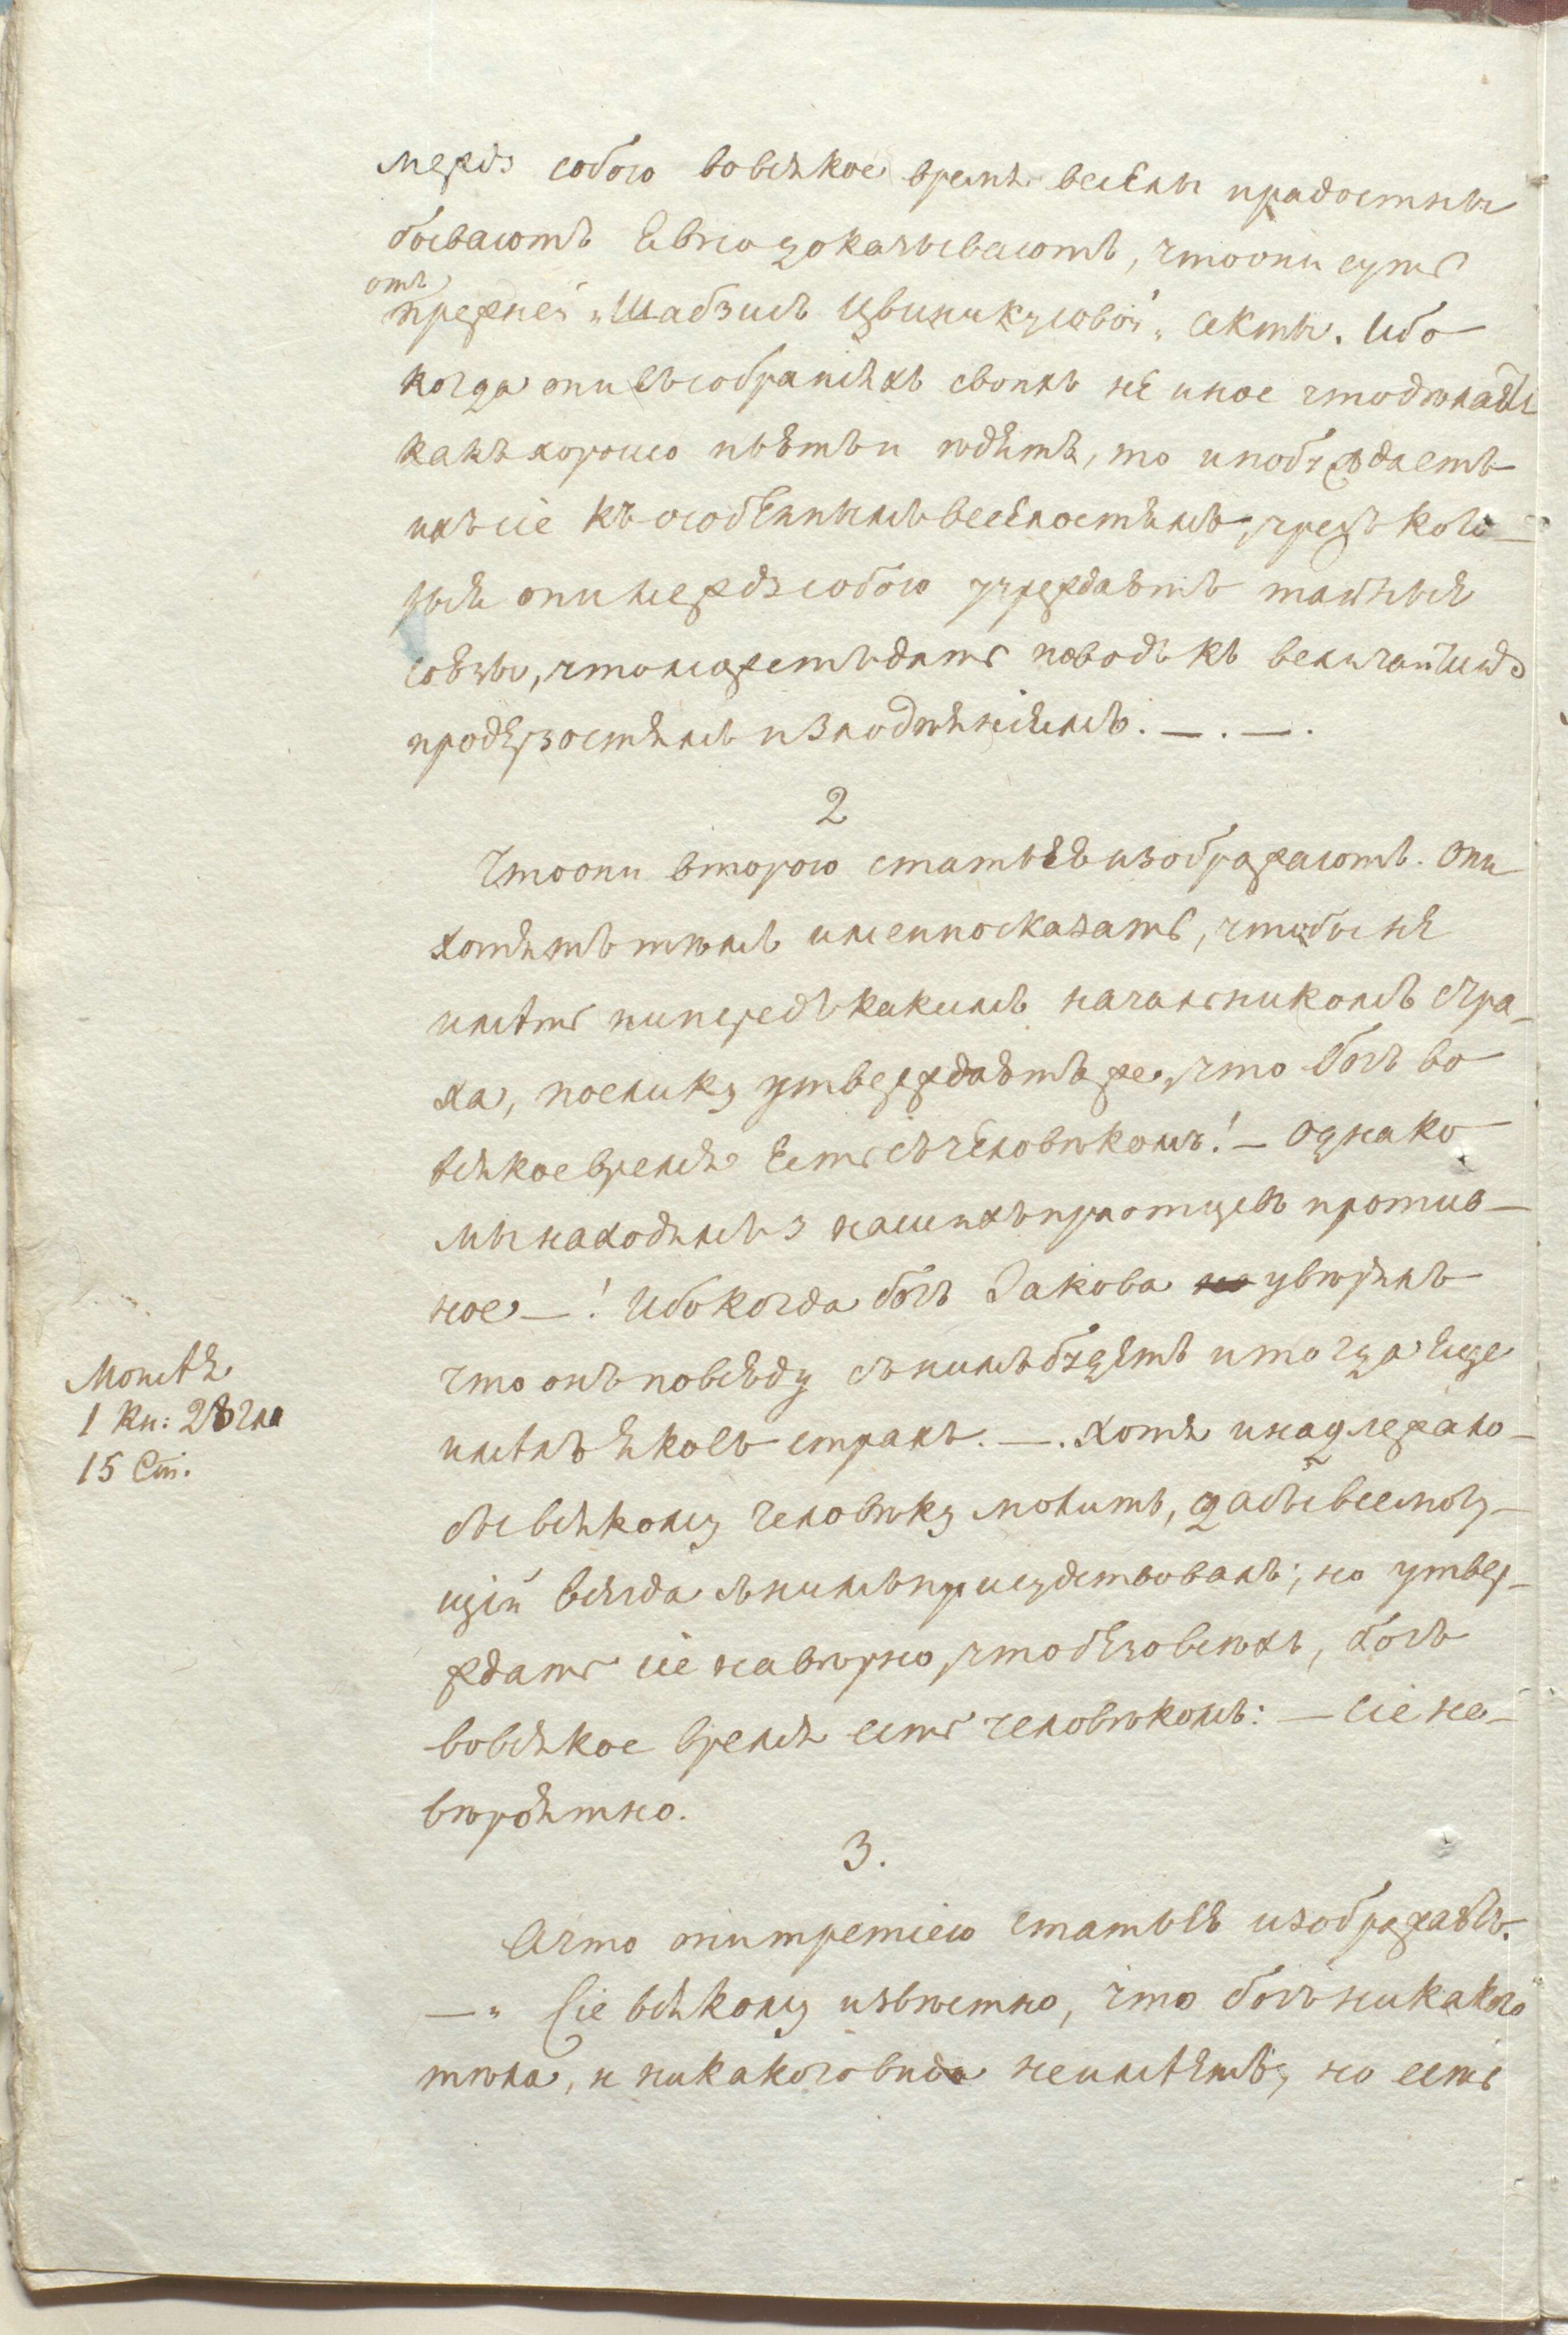 межъ собою вовсякое время веселы ирадостны
бываютъ Евно доказываютъ, чтоони суть
отъ
прежней „Шабзилъ Цвиникусовой„ секты. Ибо
когда они въсобранiяхъ своихъ не иное чтодѣлаютъ
какъхорошо пьютъи ѣдятъ, то ипобуждаетъ
ихъсiе къособеннымъвеселостямъ, чрезъ кото-
рыя онимежъ собою учреждаютъ тайныя
союзы, чтоможетъдать поводъ къ величайшимъ
продерзостямъ излодѣянiямъ. —. —.
2
Чтоони второю статьею изображаютъ. Они
хотятъ тѣмъ именносказать, чтобы не
имѣть нипередъ какимъ начальникомъ стра-
ха, поелику утверждаютъже, что Богъ во
всякоевремя Есть съчеловѣкомъ! — Однако
мынаходимъ з нашихъпраотцевъ против-
ное —! Ибокогда богъ Iакова увѣрилъ
что онъповсюду снимъбудетъ итогда Еще
имѣлъ Яковъ страхъ. —. хотя инадлежало-
бывсякому человѣку молить, дабывсемогу-
щiй всегда снимъприсудствовалъ; но утвер-
ждать сiе навѣрно, чтобезовсѣхъ, богъ
вовсякое время есть человѣкомъ: — Сiе не-
вѣроятно.
3.
Ачто онитретiею статьею изображаютъ.
—„ Сiе всякому извѣстно, что богъникакого
тѣла, и никакоговида неимѣетъ, но есть
Моисѣя
1 Кн: 28 гла
15 Ст.